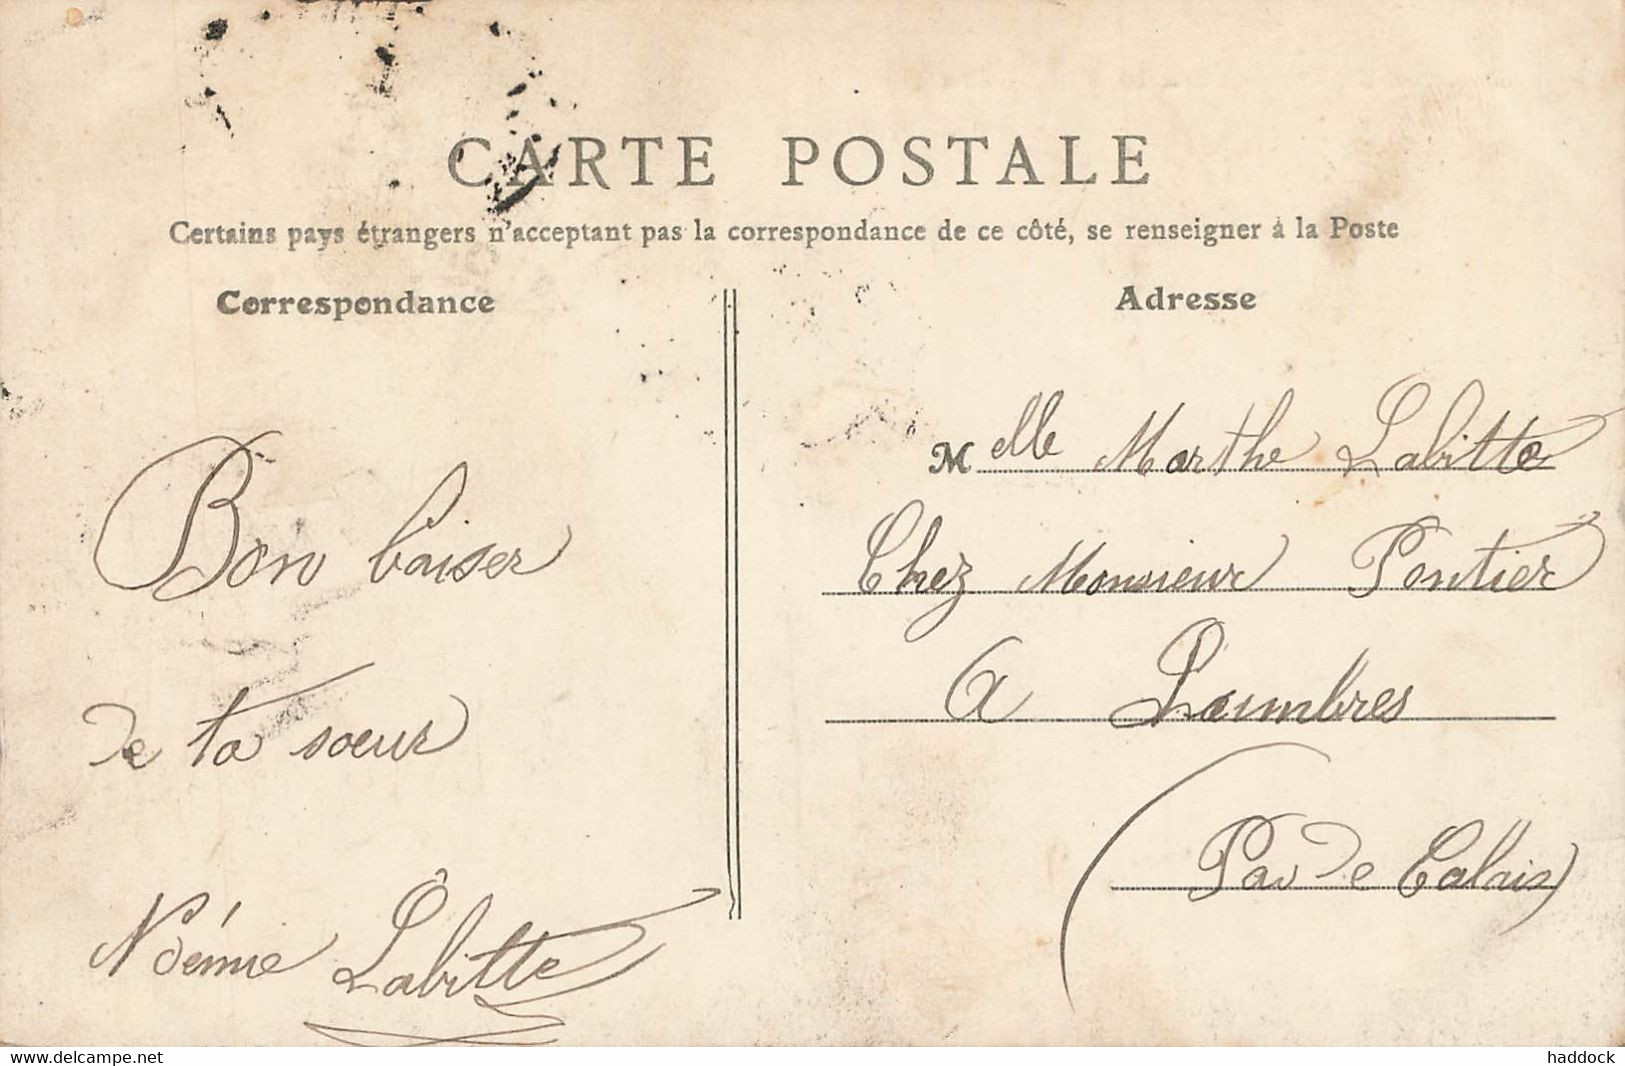 CARTE POSTALE
Certains pays étrangers n'acceptant pas la correspondance de ce côté, se renseigner à la Poste
Correspondance
Bon baiser
de ta soeur
Noémie Labitte
Adresse
Melle Marthe Labitte
Chez Monsieur Pontier
A Lumbres
(Pas de Calais)
www.delcampe.net
haddock